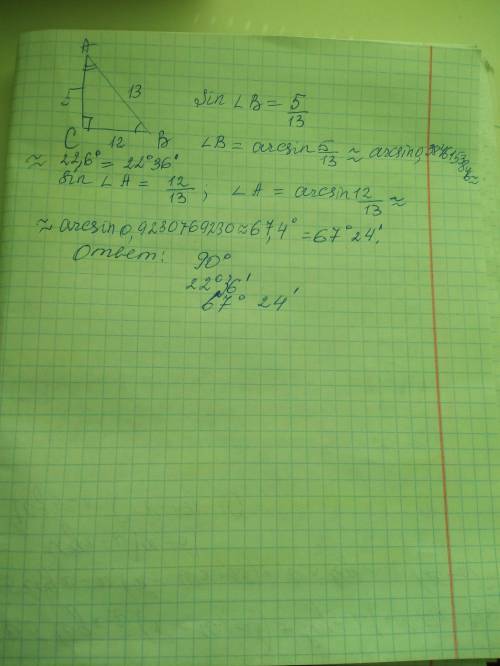 A
5
13
C
12
B
sin ∠B = 5/13
∠B = arcsin 5/13 ≈ arcsin 0,3846153846 ≈
≈ 22,6° = 22°36'
sin ∠A = 12/13 ; ∠A = arcsin 12/13 ≈
≈ arcsin 0,9230769230 ≈ 67,4° = 67°24'.
Ответ: 90°
22°36'
67° 24'